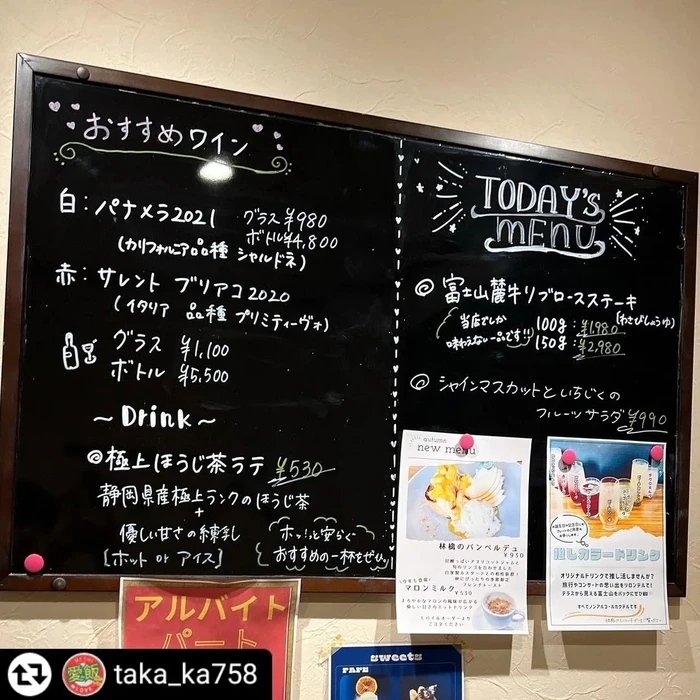 おすすめワイン
白：パナメラ2021 グラス¥980
ボトル¥4,800
(カリフォルニア品種 シャルドネ)
赤：サレント プリアコ2020
(イタリア 品種 プリミティーヴォ)
グラス ¥1,100
ボトル ¥5,500
～Drink～
◎極上ほうじ茶ラテ ¥530
静岡県産極上ランクのほうじ茶
+
優しい甘さの練乳
[ホット or アイス]
ホッ!っと安らぐ
おすすめの一杯をぜひ
TODAY'S
MENU
◎富士山麓牛リブロースステーキ
(わさびしょうゆ)
当店でしか
味わえない一品です!!
100g：¥1,980
150g：¥2,980
◎シャインマスカットといちじくの
フルーツサラダ ¥990
autumn
new menu
林檎のパンペルデュ
¥950
マロンミルク ¥530
推しカラードリンク
オリジナルドリンクで推し活しませんか？
旅行やコンサートの思い出をロンデルで！
テラスから見える富士山もバックにぜひ
すべてノンアルコールカクテルです
アルバイト
パート
sweets
FAFE
愛飯
taka_ka758